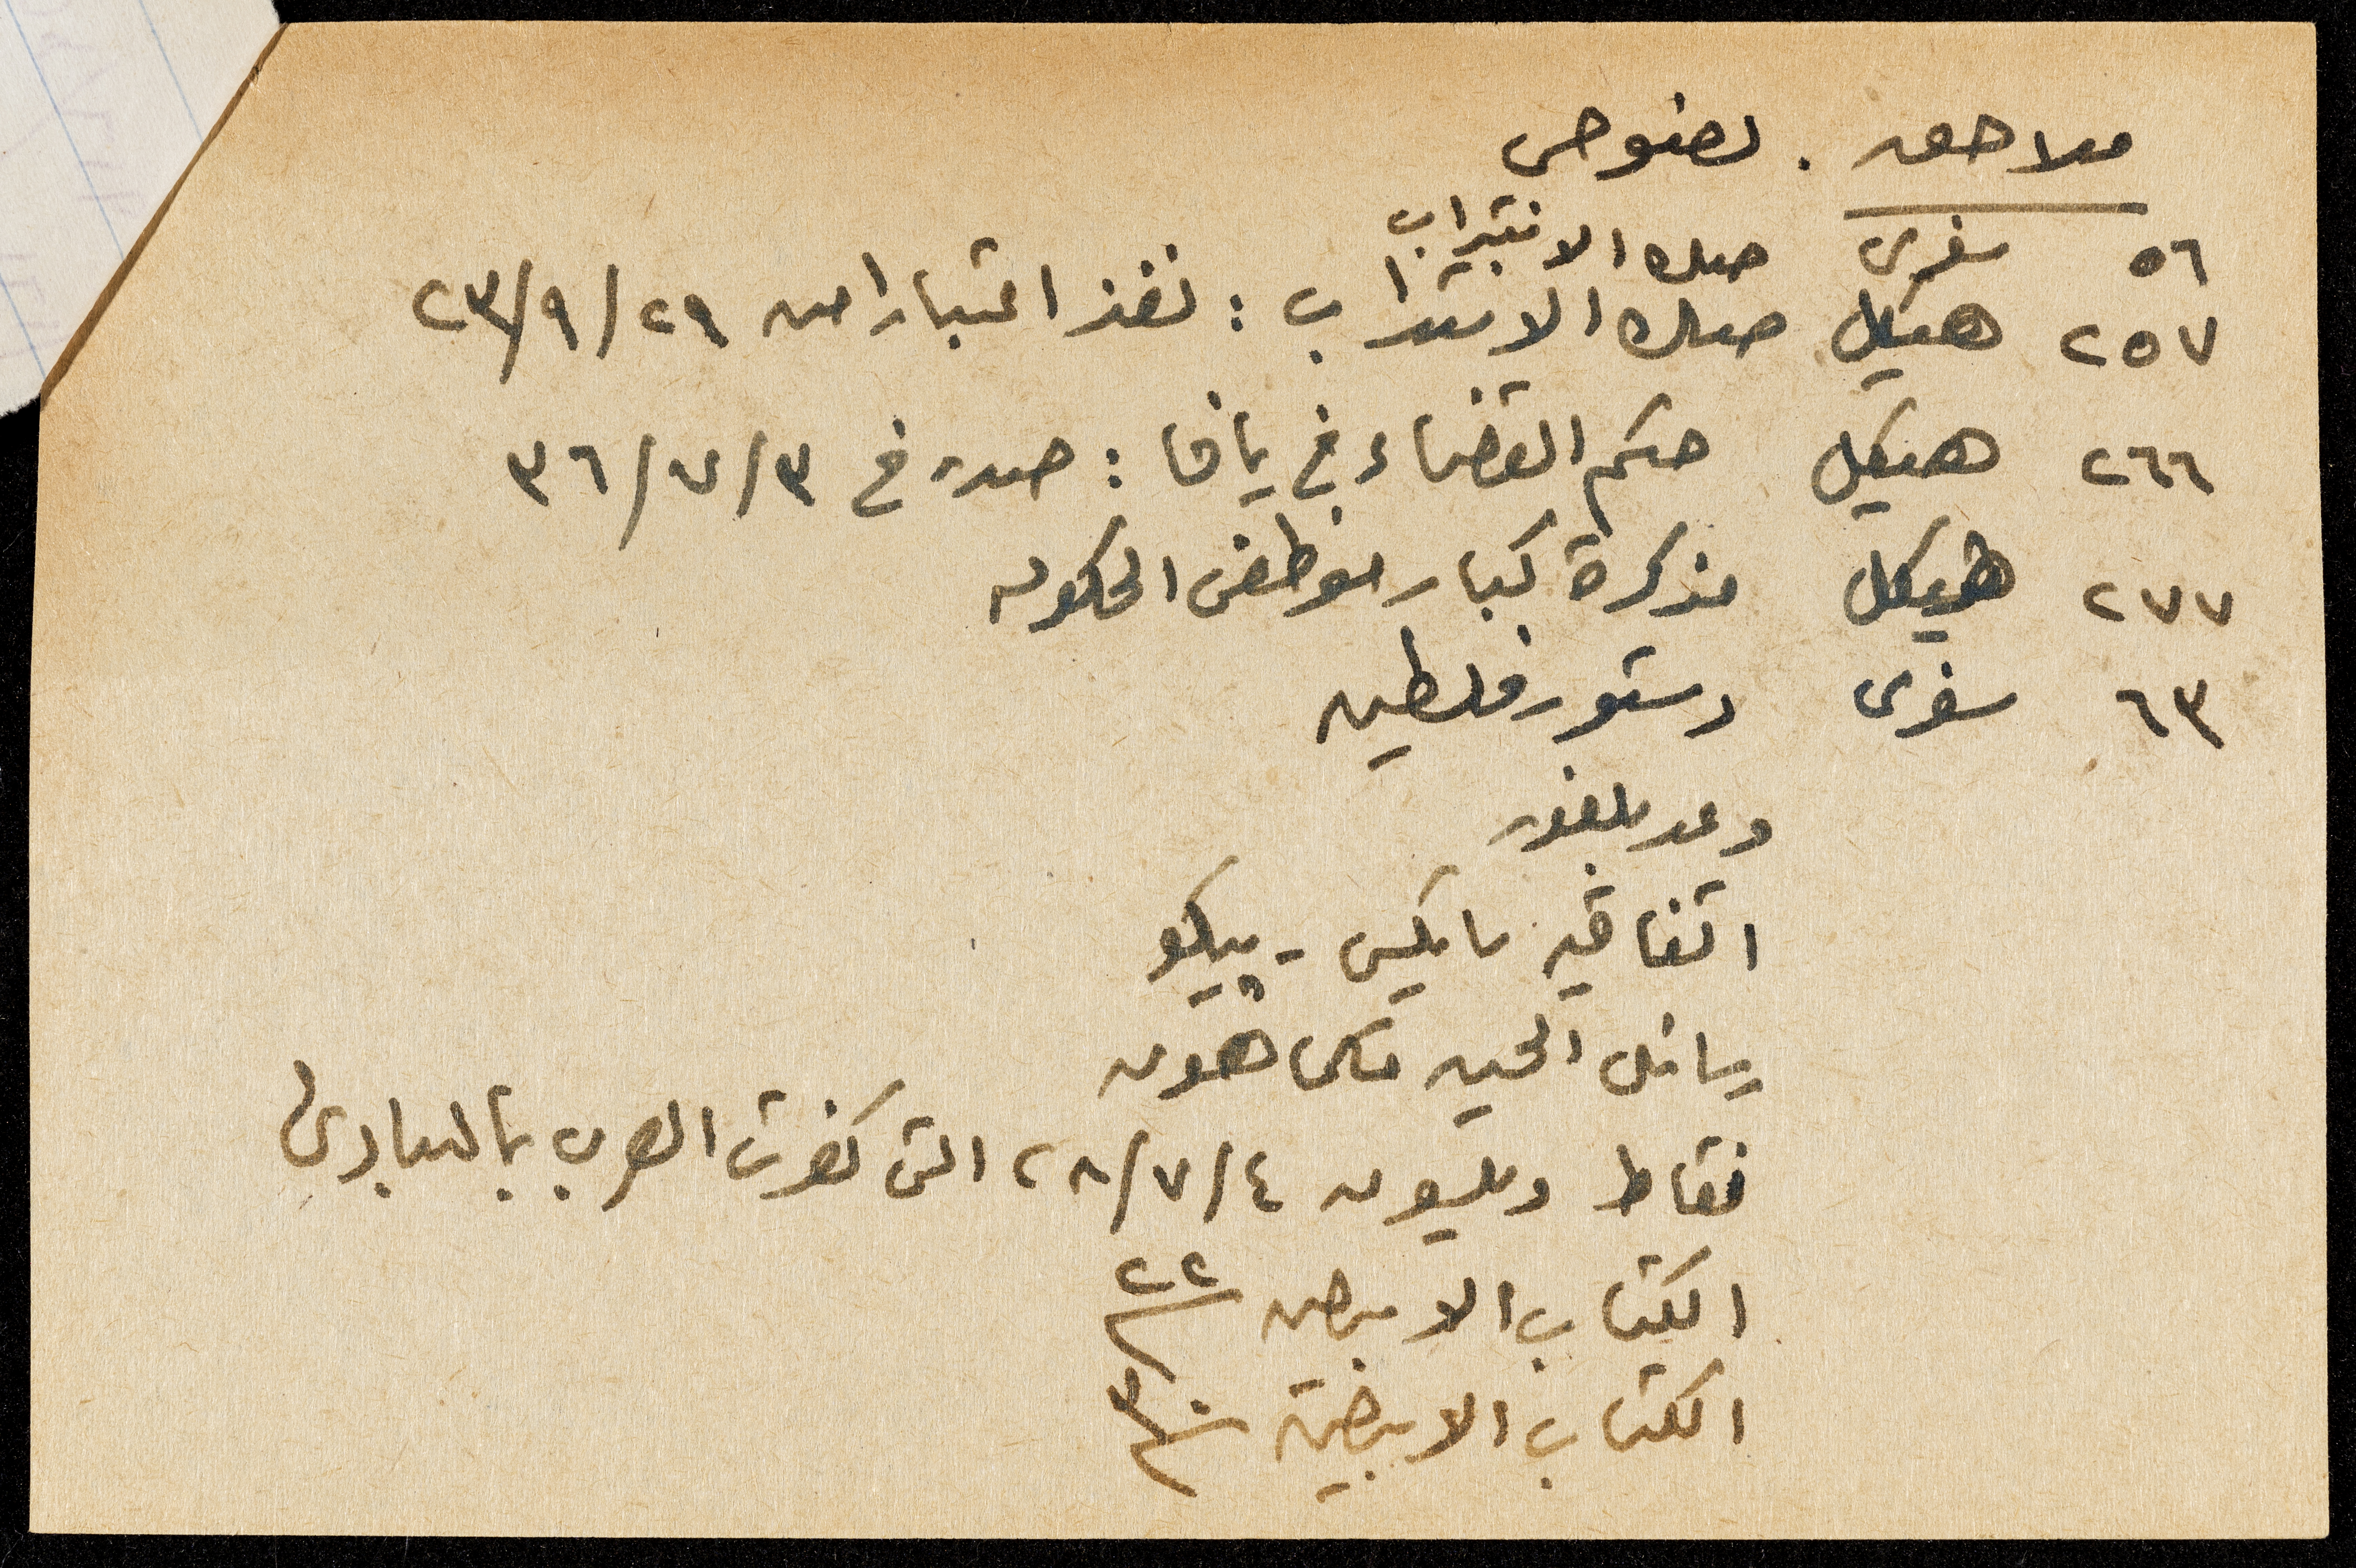 ملاحق . نصوص
٥٦ سفرى صك الانتداب
٢٥٧ هيكل صك الانتداب : نفذ اعتبارا من ٢٩/٩/٢٣
٢٦٦ هيكل حكم القضاء في يافا : صدر في ٣/٧/٣٦
٢٧٧ هيكل مذكرة كبار موظفى الحكومه
٦٣ سفرى دستور فلسطين
وعد بلفور
اتفاقيه سايكس - پيكو
رسائل الحسين مكماهون
نقاط ويلسون ٤/٧/٢٨ التى كفرت العرب بالمبادئ
الكتاب الابيض ٢٢
الكتاب الابيض ٣٠